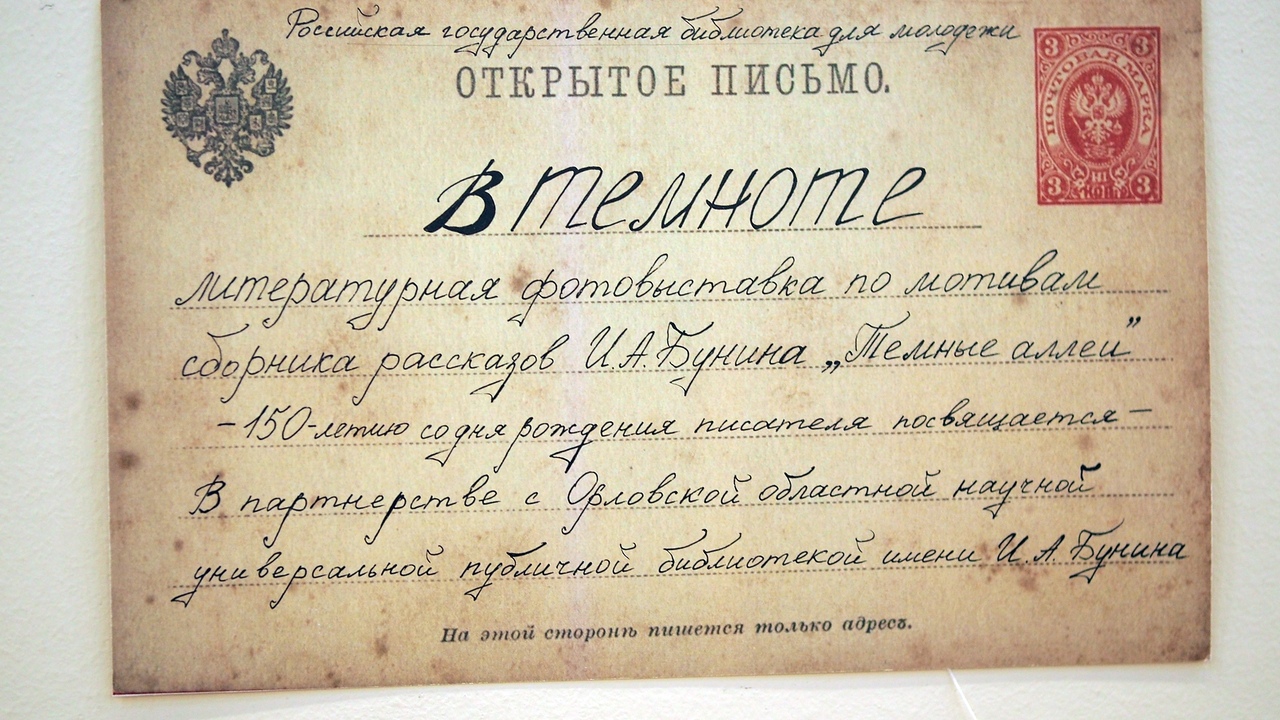 Российская государственная библиотека для молодежи
ОТКРЫТОЕ ПИСЬМО.
3 3
ПОЧТОВАЯ МАРКА
3 КОП. 3
В темноте
литературная фотовыставка по мотивам
сборника рассказов И.А.Бунина „Темные аллеи”
-150-летию со дня рождения писателя посвящается-
В партнерстве с Орловской областной научной
универсальной публичной библиотекой имени И.А.Бунина
На этой сторонѣ пишется только адресъ.